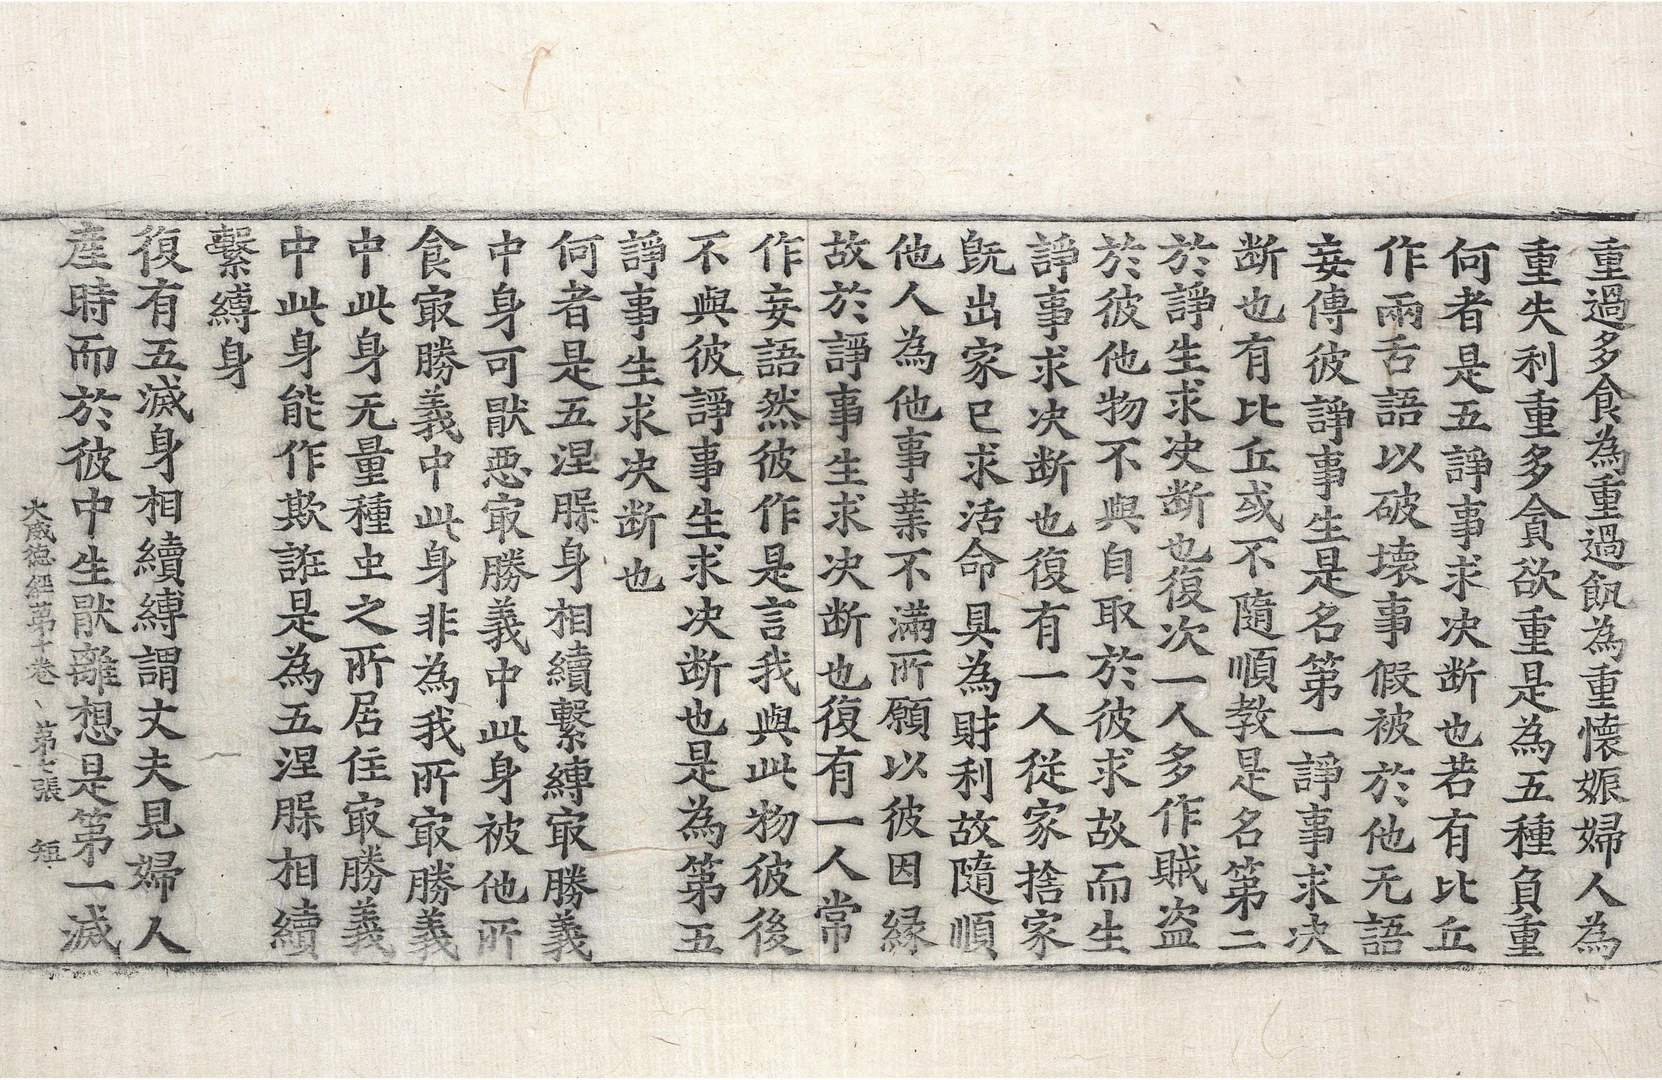 重過多食為重過飢為重懷娠婦人為
重失利重多貪欲重是為五種負重
何者是五諍事求决断也若有比丘
作兩舌語以破壊事假被於他无語
妄傳彼諍事生是名第一諍事求决
断也有比丘或不隨順教是名第二
於諍生求决断也復次一人多作賊盗
於彼他物不與自取於彼求故而生
諍事求决断也復有一人從家捨家
既出家已求活命具為財利故隨順
他人為他事業不滿所願以彼因縁
故於諍事生求决断也復有一人常
作妄語然彼作是言我與此物彼後
不與彼諍事生求决断也是為第五
諍事生求决断也
何者是五涅脲身相續繫縛㝡勝義
中身可猒惡㝡勝義中此身被他所
食㝡勝義中此身非為我所㝡勝義
中此身无量種虫之所居住㝡勝義
中此身能作欺誑是為五涅脲相續
繫縛身
復有五滅身相續縛謂丈夫見婦人
産時而於彼中生猒離想是第一滅
大威德經苐十卷、苐七張 短